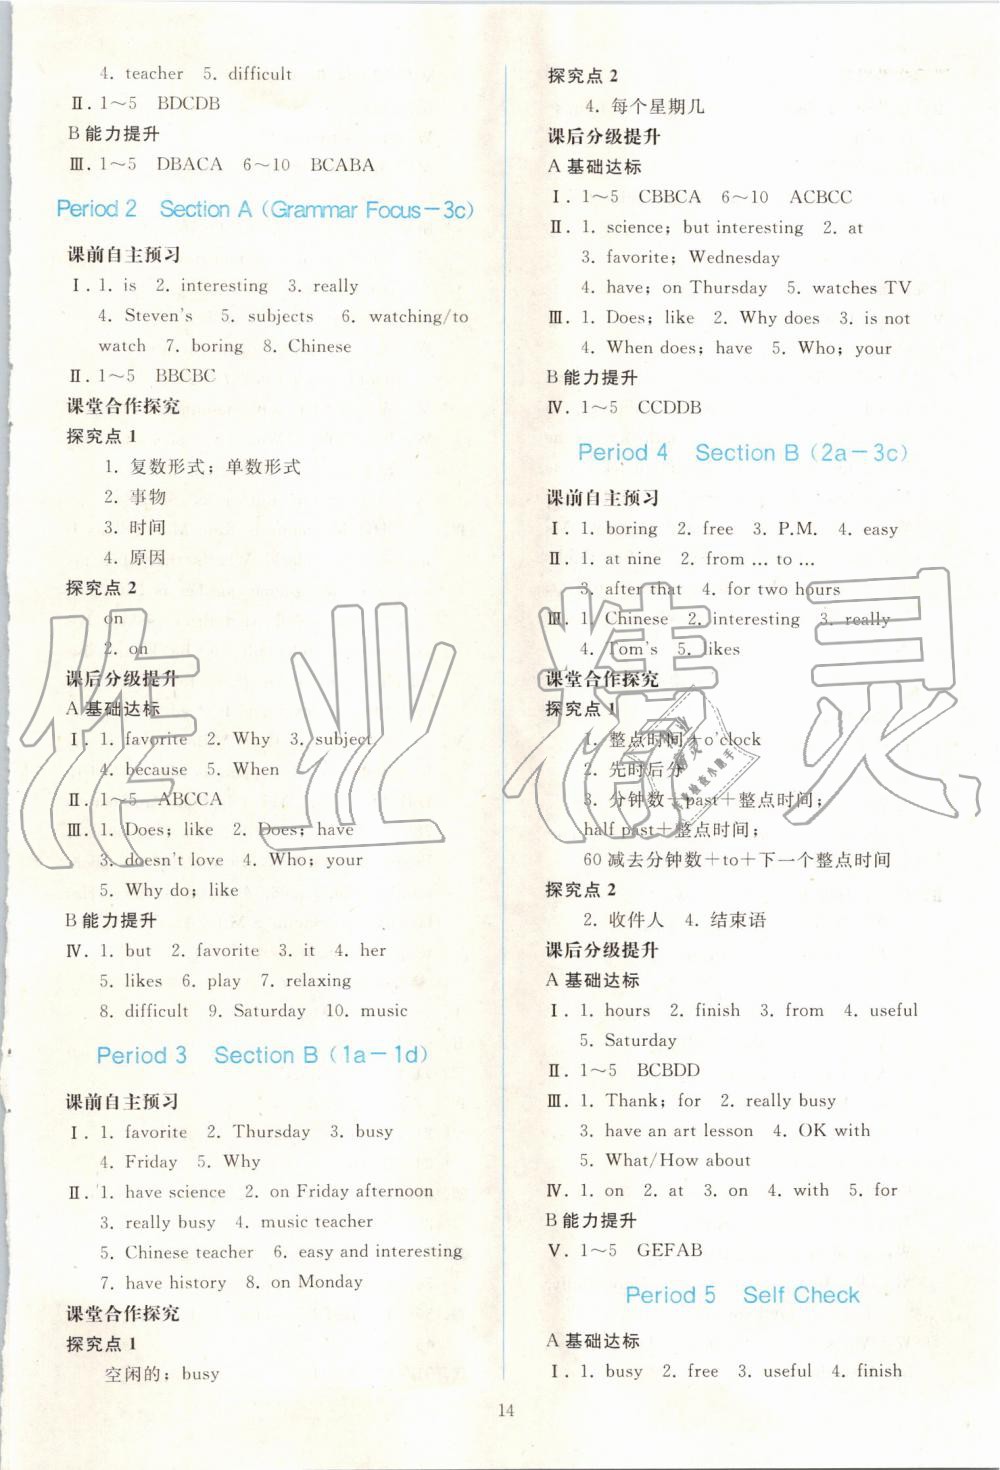 4. teacher  5. difficult
Ⅱ. 1～5  BDCDB
B 能力提升
Ⅲ. 1～5  DBACA  6～10  BCABA
Period 2  Section A（Grammar Focus－3c）
课前自主预习
Ⅰ. 1. is  2. interesting  3. really
4. Steven's  5. subjects  6. watching/to
watch  7. boring  8. Chinese
Ⅱ. 1～5  BBCBC
课堂合作探究
探究点 1
1. 复数形式；单数形式
2. 事物
3. 时间
4. 原因
探究点 2
on
2. on
课后分级提升
A 基础达标
Ⅰ. 1. favorite  2. Why  3. subject
4. because  5. When
Ⅱ. 1～5  ABCCA
Ⅲ. 1. Does; like  2. Does; have
3. doesn't love  4. Who; your
5. Why do; like
B 能力提升
Ⅳ. 1. but  2. favorite  3. it  4. her
5. likes  6. play  7. relaxing
8. difficult  9. Saturday  10. music
Period 3  Section B（1a－1d）
课前自主预习
Ⅰ. 1. favorite  2. Thursday  3. busy
4. Friday  5. Why
Ⅱ. 1. have science  2. on Friday afternoon
3. really busy  4. music teacher
5. Chinese teacher  6. easy and interesting
7. have history  8. on Monday
课堂合作探究
探究点 1
空闲的；busy
探究点 2
4. 每个星期几
课后分级提升
A 基础达标
Ⅰ. 1～5  CBBCA  6～10  ACBCC
Ⅱ. 1. science; but interesting  2. at
3. favorite; Wednesday
4. have; on Thursday  5. watches TV
Ⅲ. 1. Does; like  2. Why does  3. is not
4. When does; have  5. Who; your
B 能力提升
Ⅳ. 1～5  CCDDB
Period 4  Section B（2a－3c）
课前自主预习
Ⅰ. 1. boring  2. free  3. P.M.  4. easy
Ⅱ. 1. at nine  2. from … to …
3. after that  4. for two hours
Ⅲ. 1. Chinese  2. interesting  3. really
4. Tom's  5. likes
课堂合作探究
探究点 1
1. 整点时间＋o'clock
2. 先时后分
3. 分钟数＋past＋整点时间；
half past＋整点时间；
60 减去分钟数＋to＋下一个整点时间
探究点 2
2. 收件人  4. 结束语
课后分级提升
A 基础达标
Ⅰ. 1. hours  2. finish  3. from  4. useful
5. Saturday
Ⅱ. 1～5  BCBDD
Ⅲ. 1. Thank; for  2. really busy
3. have an art lesson  4. OK with
5. What/How about
Ⅳ. 1. on  2. at  3. on  4. with  5. for
B 能力提升
Ⅴ. 1～5  GEFAB
Period 5  Self Check
A 基础达标
Ⅰ. 1. busy  2. free  3. useful  4. finish
14
作业精灵